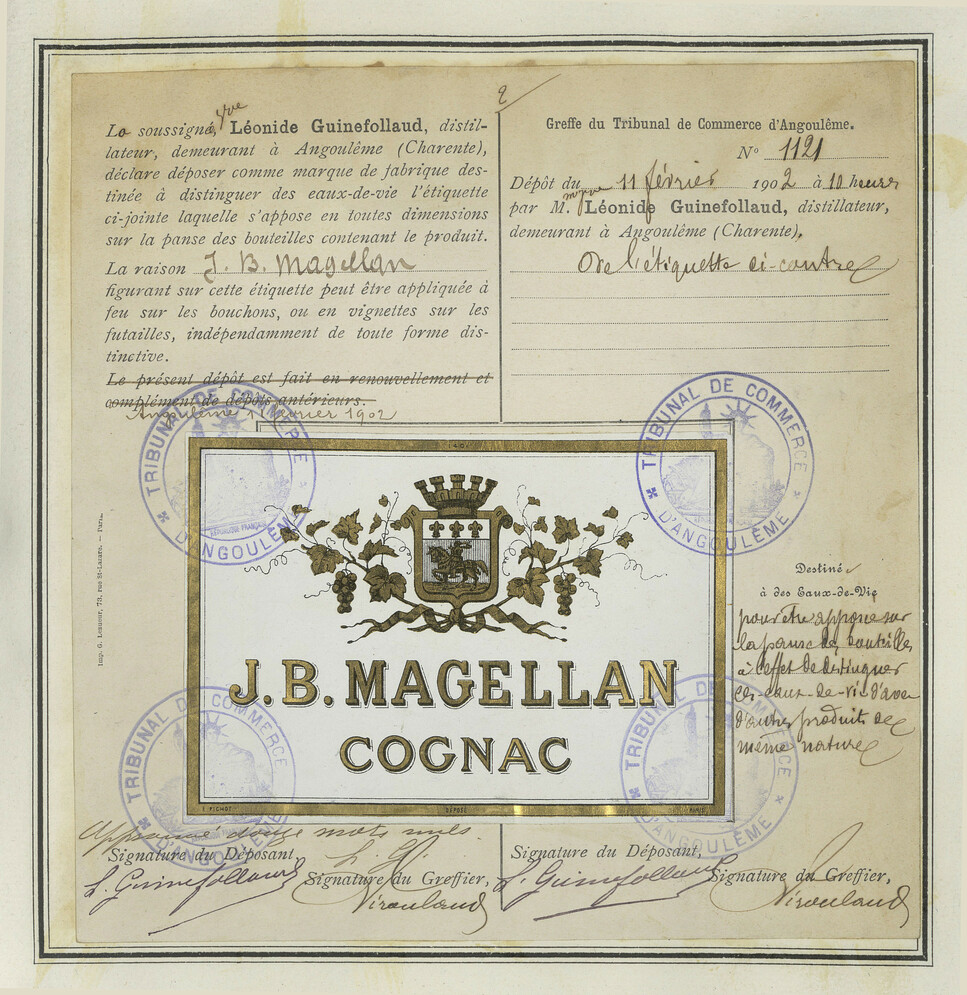 2
La soussignée, Vve Léonide Guinefollaud, distil-
lateur, demeurant à Angoulême (Charente),
déclare déposer comme marque de fabrique des-
tinée à distinguer des eaux-de-vie l'étiquette
ci-jointe laquelle s'appose en toutes dimensions
sur la panse des bouteilles contenant le produit.
La raison J. B. Magellan
figurant sur cette étiquette peut être appliquée à
feu sur les bouchons, ou en vignettes sur les
futailles, indépendamment de toute forme dis-
tinctive.
Le présent dépôt est fait en renouvellement et
complément de dépôts antérieurs.
Angoulême 11 février 1902
Greffe du Tribunal de Commerce d'Angoulême.
N° 1121
Dépôt du 11 février 1902 à 10 heures
par M. Léonide Guinefollaud, distillateur,
demeurant à Angoulême (Charente),
De l'étiquette ci-contre
TRIBUNAL DE COMMERCE
D'ANGOULÊME
RÉPUBLIQUE FRANÇAISE
TRIBUNAL DE COMMERCE
D'ANGOULÊME
J.B. MAGELLAN
COGNAC
DÉPOSÉ
Imp. G. Lesueur, 73, rue St-Lazare. — Paris.
Destiné
à des Eaux-de-Vie
pour être apposé sur
la panse des bouteilles
à l'effet de distinguer
ces eaux-de-vie d'avec
d'autres produits de
même nature
TRIBUNAL DE COMMERCE
D'ANGOULÊME
TRIBUNAL DE COMMERCE
D'ANGOULÊME
Approuvé douze mots nuls.
L. G.
Signature du Déposant,
L. Guinefollaud
Signature du Greffier,
Signature du Déposant,
L. Guinefollaud
Signature du Greffier,